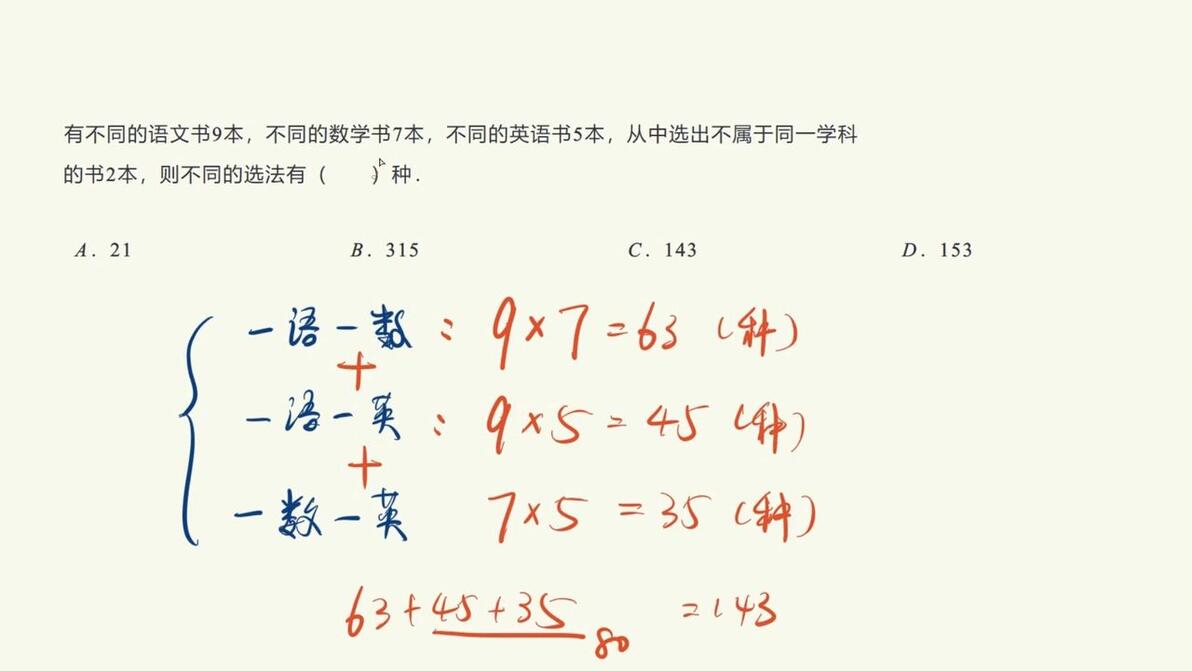 有不同的语文书9本，不同的数学书7本，不同的英语书5本，从中选出不属于同一学科
的书2本，则不同的选法有（　　）种．
A．21　B．315　C．143　D．153
一语一数：9×7=63（种）
+
一语一英：9×5=45（种）
+
一数一英 7×5=35（种）
63+45+35 =143
80